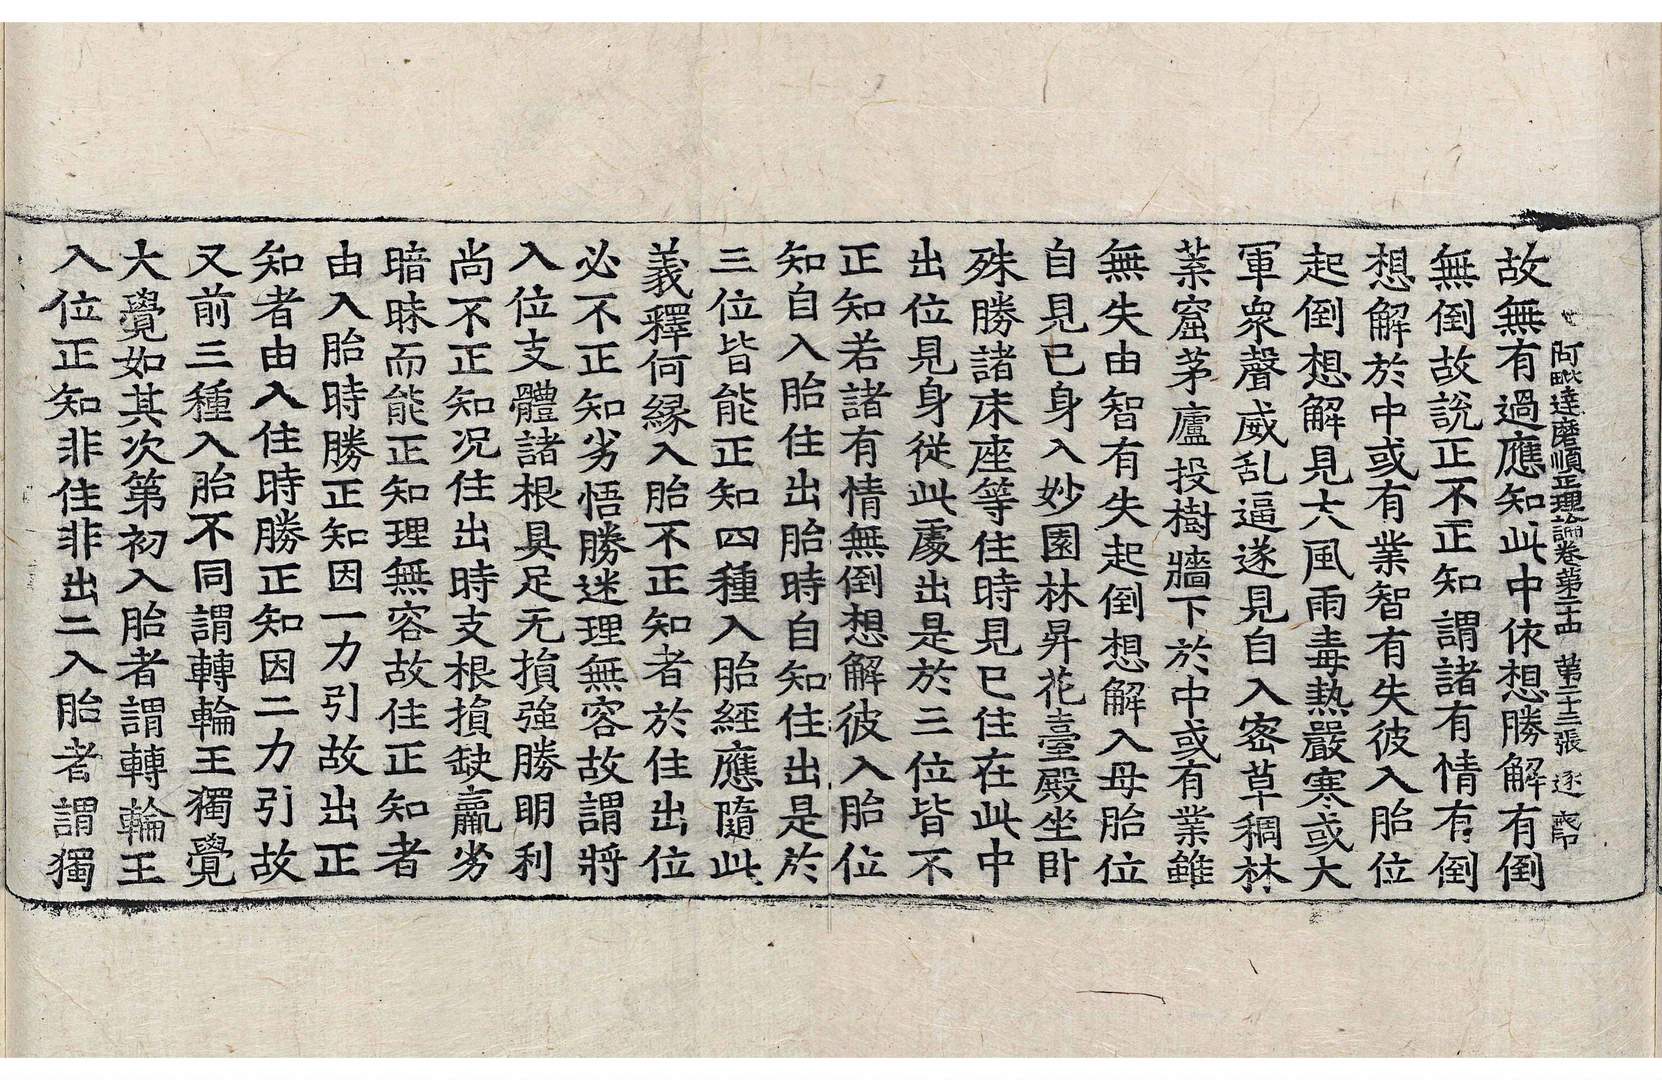 阿毗達磨順正理論卷第二十四 第二十三張 逐
故無有過應知此中依想勝解有倒
無倒故說正不正知謂諸有情有倒
想解於中或有業智有失彼入胎位
起倒想解見大風雨毒熱嚴寒或大
軍衆聲威乱逼遂見自入密草稠林
葉窟茅廬投樹牆下於中或有業雖
無失由智有失起倒想解入母胎位
自見己身入妙園林昇花臺殿坐卧
殊勝諸床座等住時見已住在此中
出位見身從此處出是於三位皆不
正知若諸有情無倒想解彼入胎位
知自入胎住出胎時自知住出是於
三位皆能正知四種入胎經應隨此
義釋何緣入胎不正知者於住出位
必不正知劣悟勝迷理無容故謂將
入位支體諸根具足无損強勝明利
尚不正知况住出時支根損缺羸劣
暗昧而能正知理無容故住正知者
由入胎時勝正知因一力引故出正
知者由入住時勝正知因二力引故
又前三種入胎不同謂轉輪王獨覺
大覺如其次第初入胎者謂轉輪王
入位正知非住非出二入胎者謂獨